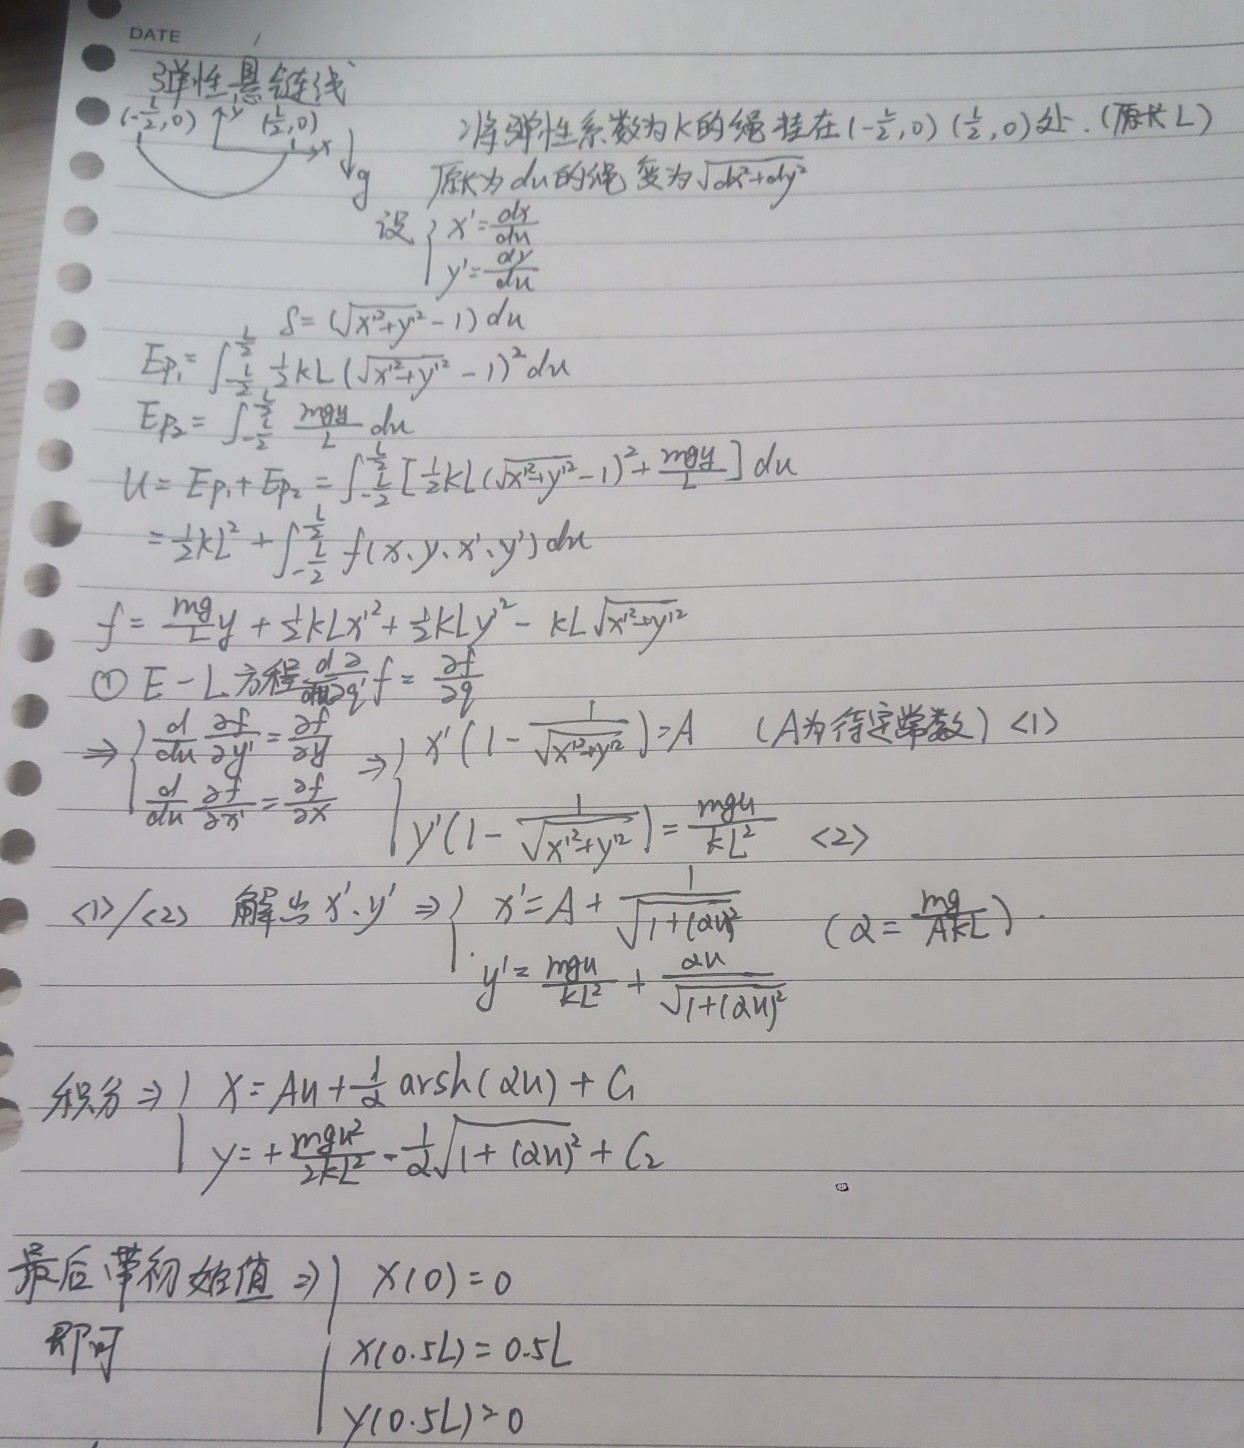 DATE
弹性悬链线
(-L/2,0) y (L/2,0) x g
将弹性系数为k的绳挂在(-L/2,0)(L/2,0)处.(原长L)
原长为du的绳变为√(dx²+dy²)
设 { x'=dx/du
y'=dy/du
S=(√(x'²+y'²)-1)du
Ep₁=∫_{-L/2}^{L/2} ½kL(√(x'²+y'²)-1)²du
Ep₂=∫_{-L/2}^{L/2} mgy/L du
U=Ep₁+Ep₂=∫_{-L/2}^{L/2}[½kL(√(x'²+y'²)-1)²+mgy/L]du
=½kL²+∫_{-L/2}^{L/2} f(x、y、x'、y')du
f=mg/L y+½kLx'²+½kLy'²-kL√(x'²+y'²)
① E-L方程 d/du ∂/∂q' f=∂f/∂q
⇒ { d/du ∂f/∂y'=∂f/∂y ⇒ { x'(1-1/√(x'²+y'²))=A (A为待定常数) <1>
d/du ∂f/∂x'=∂f/∂x y'(1-1/√(x'²+y'²))=mgu/kL² <2>
<1>/<2> 解出x'、y' ⇒ { x'=A+1/√(1+(αu)²) (α=mg/AkL).
y'=mgu/kL²+αu/√(1+(αu)²)
积分⇒ { x=Au+1/α arsh(αu)+C₁
y=+mgu²/2kL²-1/α√(1+(αu)²)+C₂
最后带初始值⇒ { x(0)=0
即可 x(0.5L)=0.5L
y(0.5L)=0